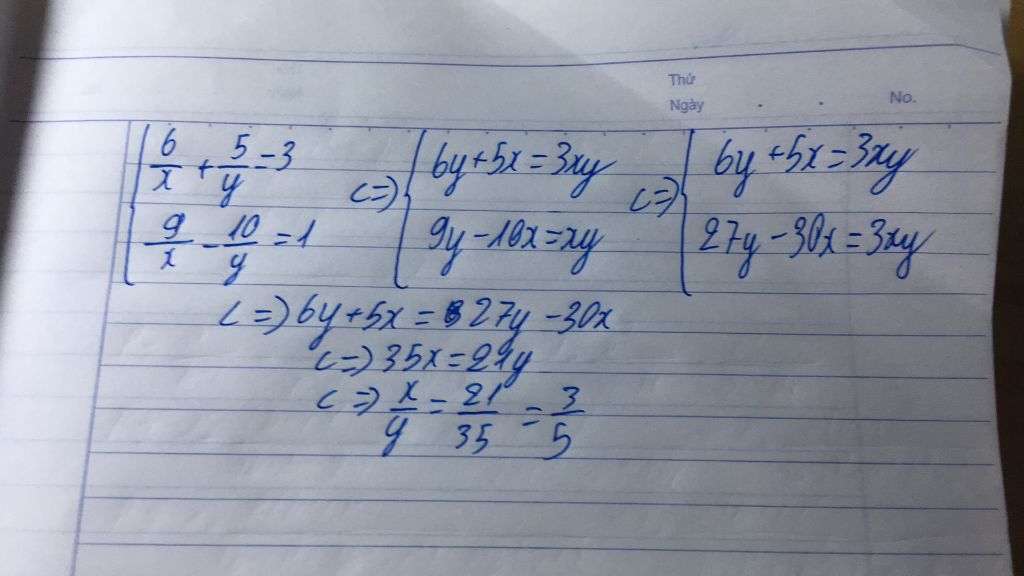 Thứ
Ngày . . No.
{ 6/x + 5/y = 3 <=> { 6y + 5x = 3xy <=> { 6y + 5x = 3xy
9/x - 10/y = 1 9y - 10x = xy 27y - 30x = 3xy
<=> 6y + 5x = 27y - 30x
<=> 35x = 21y
<=> x/y = 21/35 = 3/5